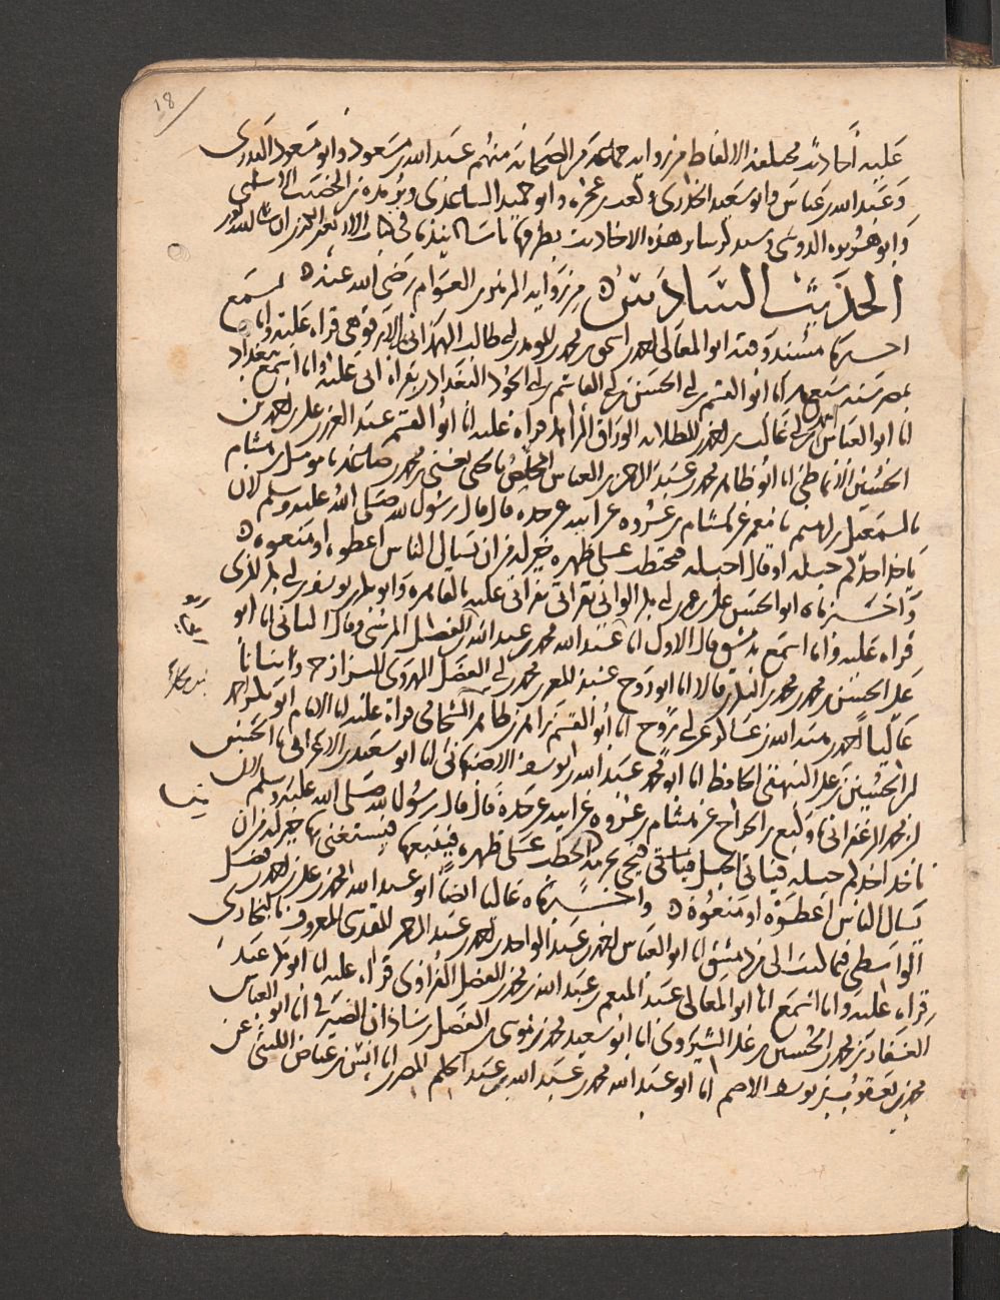 18
عليه أحاديث مختلفة الالفاظ من رواية جماعة من الصحابة منهم عبد الله بن مسعود وابو مسعود البدري
وعبد الله بن عباس وابو سعيد الخدري وكعب بن عجرة وابو حميد الساعدي وبريدة بن الحصيب الاسلمي
وابو هريرة الدوسي هذه الاحاديث بطرقها باسانيدها في
الحديث السادس من رواية الزبير بن العوام رضي الله عنه
اخبرنا مسند وقته ابو المعالي احمد بن اسحق بن محمد بن المؤيد بن ابي طالب الهمذاني الابرقوهي قراءة عليه وانا اسمع
بمصر سنة انا ابو القسم بن ابي الحسن بن ابي القاسم بن ابي الجود البغدادي بقراة ابي عليه وانا اسمع ببغداد
انا ابو العباس احمد بن ابي غالب بن احمد بن الطلاية الوراق الزاهد قراة عليه انا ابو القسم عبد العزيز بن علي بن احمد بن
الحسين الانماطي انا ابو طاهر محمد بن عبد الرحمن بن العباس المخلص نا يحيى يعني بن محمد بن صاعد نا مؤمل بن هشام
نا اسمعيل بن ابراهيم نا معمر عن هشام بن عروة عن ابيه عن جده قال قال رسول الله صلى الله عليه وسلم لان
ياخذ احدكم حبله او قال احبله فيحتطب على ظهره خير له من ان يسال الناس اعطوه او منعوه
واخبرناه ابو الحسن علي بن عمر بن ابي بكر الواني بقراتي عليه بالقاهرة وابو بكر بن يوسف بن ابي بكر المزي
قراءة عليه وانا اسمع بدمشق قال الاول انا ابو عبد الله محمد بن عبد الله بن ابي الفضل المرسي وقال الثاني انا ابو
علي الحسن بن محمد بن محمد البكري قالا انا ابو روح عبد المعز بن محمد بن ابي الفضل الهروي البزاز ح وانبانا
عاليا احمد بن هبة الله بن عساكر عن ابي روح انا ابو القسم زاهر بن طاهر الشحامي قراة عليه انا الامام ابو بكر احمد
بن الحسين بن علي البيهقي الحافظ انا ابو محمد عبد الله بن يوسف الاصبهاني انا ابو سعيد بن الاعرابي نا الحسن
بن محمد الزعفراني نا وكيع بن الجراح عن هشام بن عروة عن ابيه عن جده قال قال رسول الله صلى الله عليه وسلم لان
ياخذ احدكم حبله فياتي الجبل فياتي فيجي بحزمة الحطب على ظهره فيبيعها فيستغني بها خير له من ان
يسال الناس اعطوه او منعوه واخبرناه عاليا ايضا ابو عبد الله محمد بن علي بن احمد بن فضل
الواسطي فيما كتب الي من دمشق انا ابو العباس احمد بن عبد الواحد بن احمد بن عبد الرحمن المقدسي المعروف بالبخاري
قراءة عليه وانا اسمع انا ابو المعالي عبد المنعم بن عبد الله بن محمد بن الفضل الفراوي قراءة عليه انا ابو بكر عبد
الغفار بن محمد بن الحسين بن علي الشيروي انا ابو سعيد محمد بن موسى بن الفضل بن شاذان الصيرفي انا ابو العباس
محمد بن يعقوب بن يوسف الاصم انا ابو عبد الله محمد بن عبد الله بن عبد الحكم المصري انا انس بن عياض الليثي عن